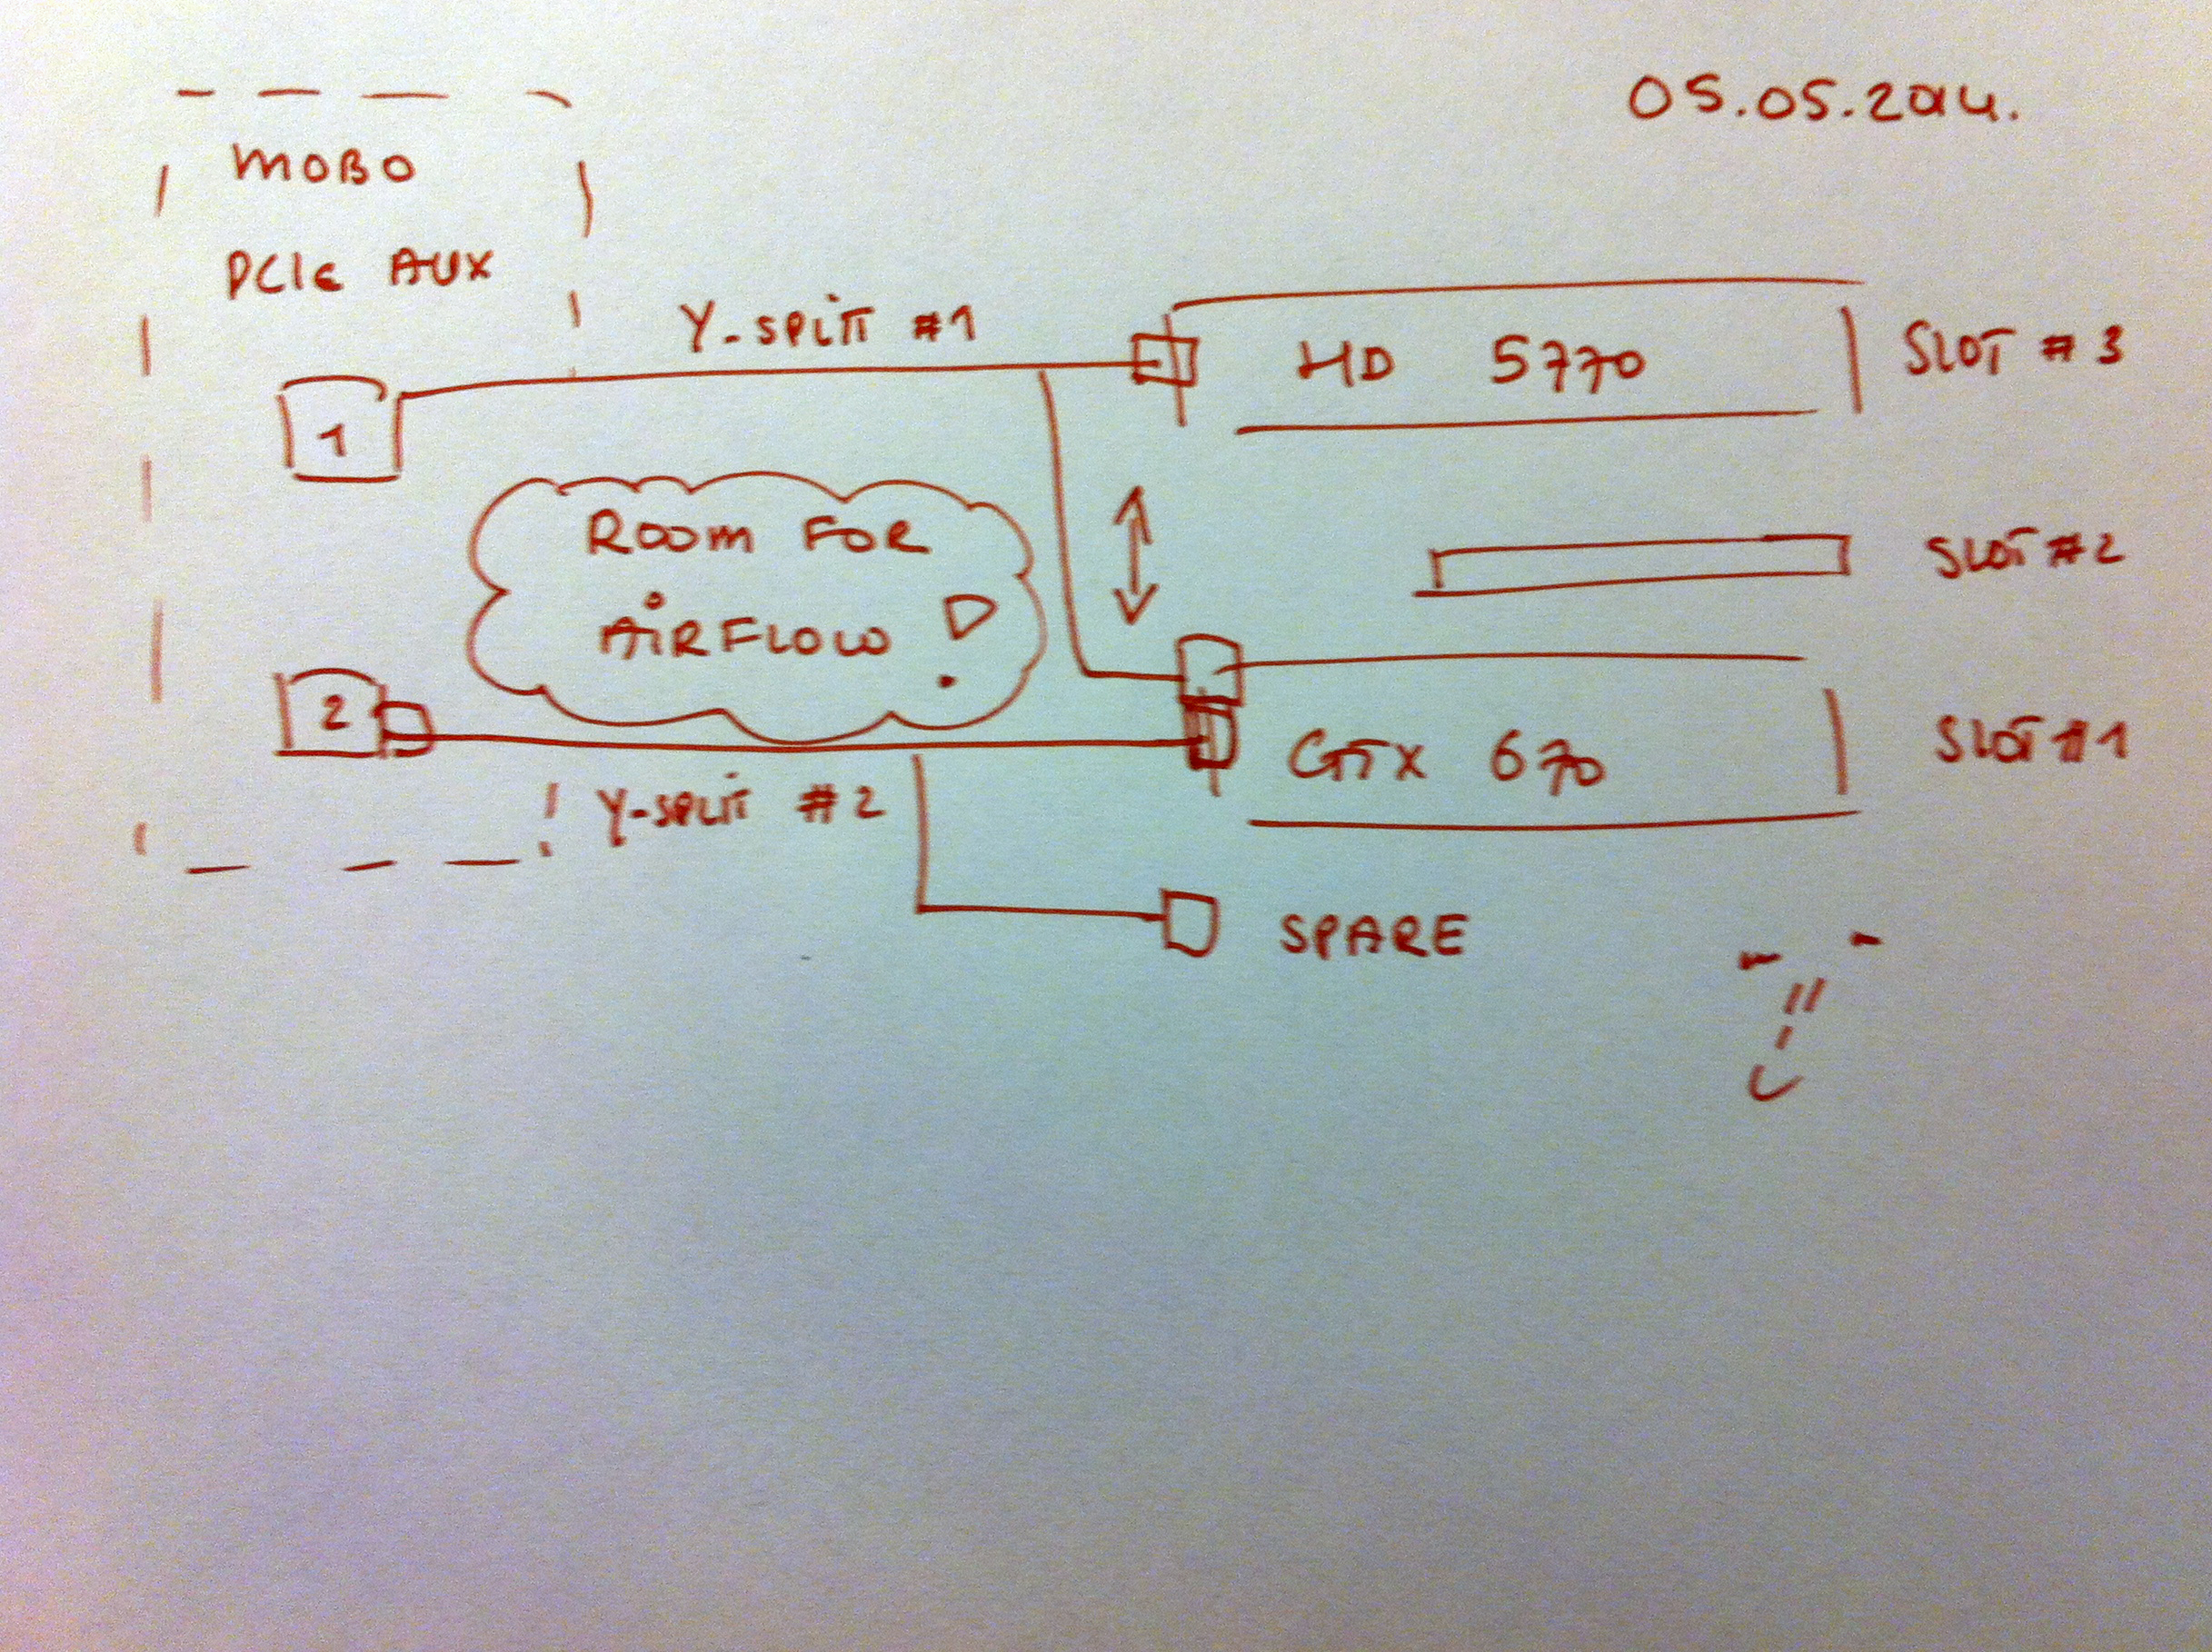 05.05.2014.
MOBO
PCIe AUX
Y-SPLIT #1
HD 5770
SLOT #3
1
ROOM FOR
AIRFLOW !
SLOT #2
2
GTX 670
SLOT #1
Y-SPLIT #2
SPARE